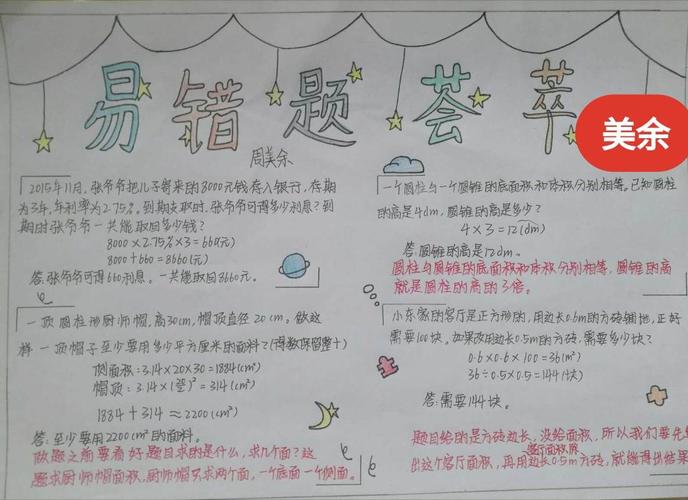 易错题荟萃
周美余
美余
2015年11月,张爷爷把儿子寄来的8000元钱存入银行,存期
为3年,年利率为2.75%。到期支取时,张爷爷可得多少利息?到
期时张爷爷一共能取回多少钱?
8000×2.75%×3=660(元)
8000+660=8660(元)
答:张爷爷可得660利息。一共能取回8660元。
一顶圆柱形厨师帽,高30cm,帽顶直径20cm。做这
样一顶帽子至少要用多少平方厘米的面料?(得数保留整十)
侧面积:3.14×20×30=1884(cm²)
帽顶:3.14×(20/2)²=314(cm²)
1884+314≈2200(cm²)
答:至少要用2200cm²的面料。
做题之前要看好题目求的是什么,求几个面?这
题求厨师帽面积,厨师帽只求两个面,一个底面一个侧面。
一个圆柱与一个圆锥的底面积和体积分别相等。已知圆柱
的高是4dm,圆锥的高是多少?
4×3=12(dm)
答:圆锥的高是12dm。
圆柱与圆锥的底面积和体积分别相等,圆锥的高
就是圆柱的高的3倍。
小东家的客厅是正方形的,用边长0.6m的方砖铺地,正好
需要100块。如果改用边长0.5m的方砖,需要多少块?
0.6×0.6×100=36(m²)
36÷0.5÷0.5=144(块)
答:需要144块。
题目给的是方砖边长,没给面积,所以我们要先
出这个客厅面积,再用边长0.5m方砖,就能得出结果